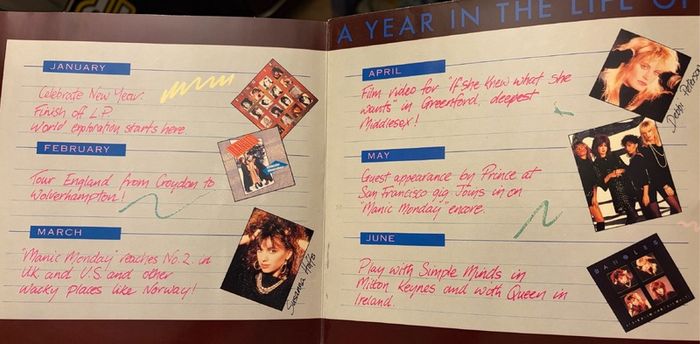 A YEAR IN THE LIFE OF
JANUARY
Celebrate New Year.
Finish of L.P.
World exploration starts here.
FEBRUARY
Tour England from Croydon to
Wolverhampton!
MARCH
"Manic Monday" reaches No. 2 in
UK and U.S and other
wacky places like Norway!
Susanna Hoffs
APRIL
Film video for "If she knew what she
wants" in Greenford, deepest
Middlesex!
Debbi Peterson
MAY
Guest appearance by Prince at
San Francisco gig. Joins in on
"Manic Monday" encore.
JUNE
Play with Simple Minds in
Milton Keynes and with Queen in
Ireland.
BANGLES